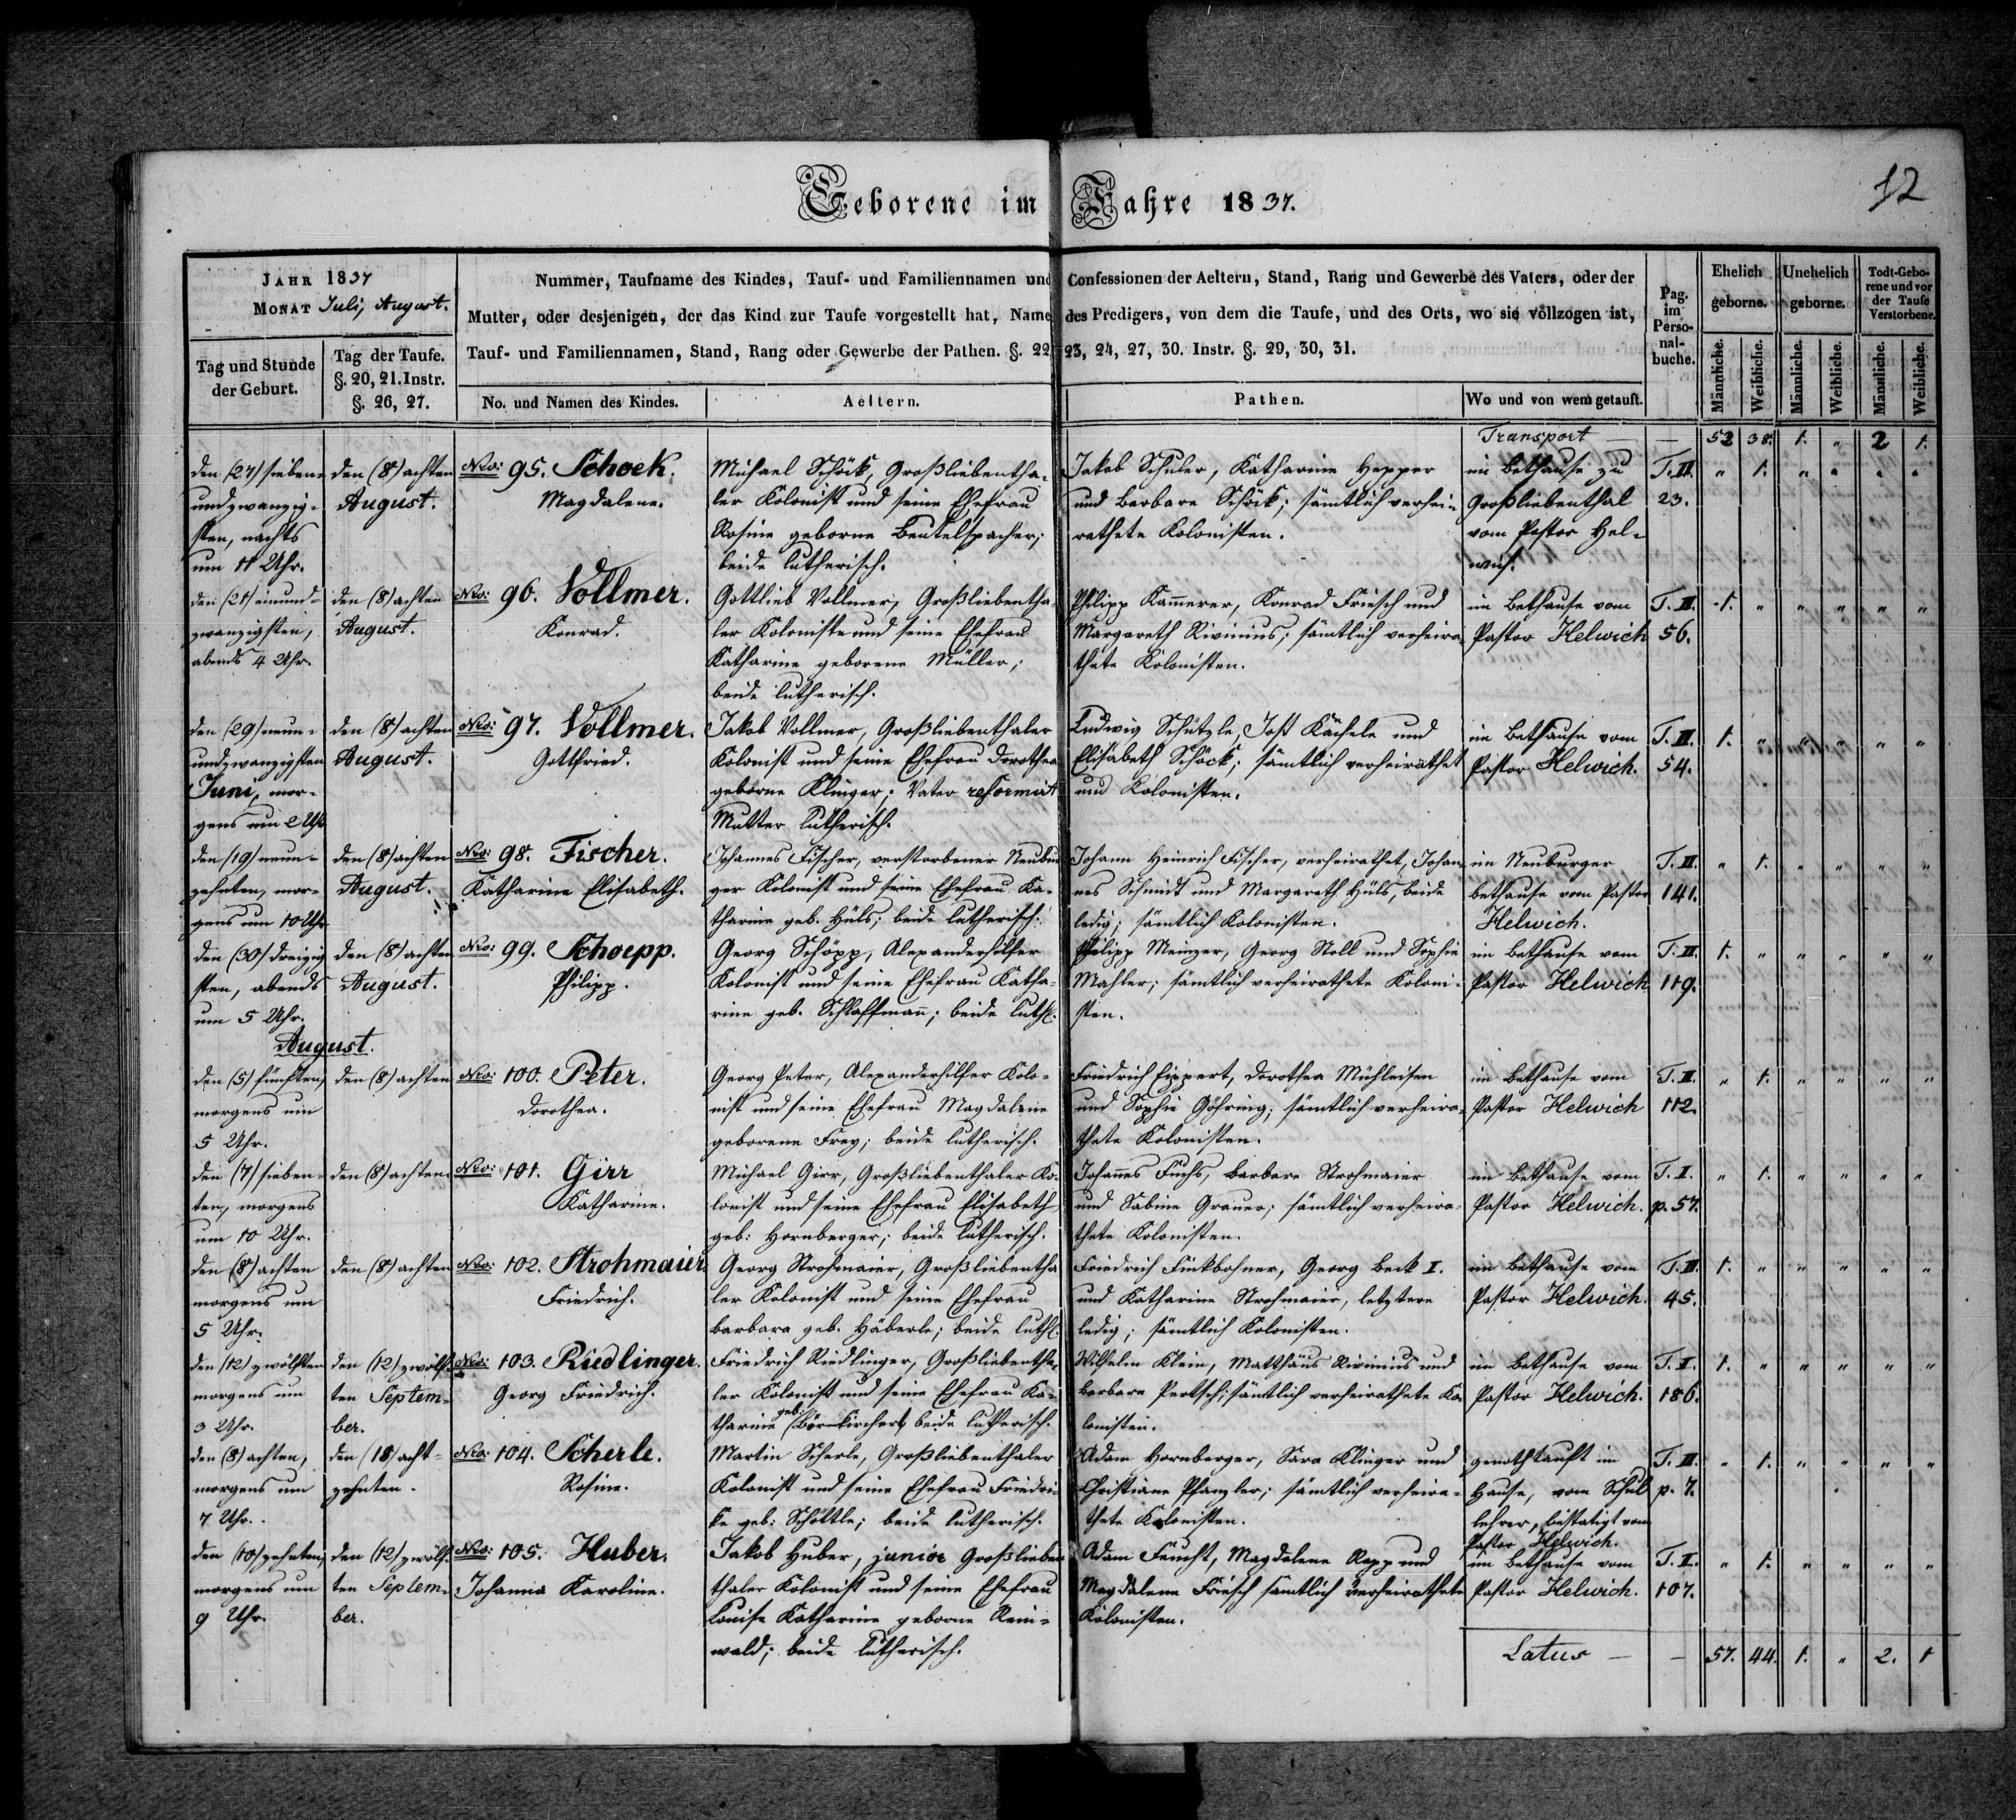 12
Geborene im Jahre 1837.
JAHR 1837
MONAT Juli, August.
Nummer, Taufname des Kindes, Tauf- und Familiennamen und Confessionen der Aeltern, Stand, Rang und Gewerbe des Vaters, oder der
Mutter, oder desjenigen, der das Kind zur Taufe vorgestellt hat, Name des Predigers, von dem die Taufe, und des Orts, wo sie vollzogen ist,
Tauf- und Familiennamen, Stand, Rang oder Gewerbe der Pathen. §. 22, 23, 24, 27, 30. Instr. §. 29, 30, 31.
Tag und Stunde
der Geburt.
Tag der Taufe.
§. 20, 21. Instr.
§. 26, 27.
No. und Namen des Kindes.
Aeltern.
Pathen.
Wo und von wem getauft.
Pag.
im
Perso-
nal-
buche.
Ehelich
geborne.
Unehelich
geborne.
Todt-Gebo-
rene und vor
der Taufe
Verstorbene.
Männliche.
Weibliche.
Männliche.
Weibliche.
Männliche.
Weibliche.
Transport — — 52 38. 1. „ 2 1.
den (27) sieben-
undzwanzig-
sten, nachts
um 11 Uhr.
den (8) achten
August.
Nro: 95. Schock.
Magdalene.
Michael Schöck, Großliebentha-
ler Kolonist und seine Ehefrau
Rosine geborne Beutelspacher;
beide lutherisch.
Jakob Schuler, Katharine Hepper
und Barbara Schöck; sämtlich verhei-
rathete Kolonisten.
im Bethause zu
Großliebenthal
vom Pastor Hel-
wich.
T. II.
23.
„ 1. „ „ „ „
den (21) einund-
zwanzigsten,
abends 4 Uhr.
den (8) achten
August.
Nro: 96. Vollmer.
Konrad.
Gottlieb Vollmer, Großliebentha-
ler Koloniste und seine Ehefrau
Katharine geborene Müller;
beide lutherisch.
Philipp Kammerer, Konrad Friesch und
Margareth Rivinius; sämtlich verheira-
thete Kolonisten.
im Bethause vom
Pastor Helwich
T. III.
56.
1. „ „ „ „ „
den (29) neun-
undzwanzigsten
Juni, mor-
gens um 2 Uhr
den (8) achten
August.
Nro: 97. Vollmer.
Gottfried.
Jakob Vollmer, Großliebenthaler
Kolonist und seine Ehefrau Dorothea
geborne Klinger; Vater reformirt
Mutter lutherisch.
Ludwig Schützle, Jost Kächele und
Elisabeth Schöck; sämtlich verheirathet
und Kolonisten.
im Bethause vom
Pastor Helwich.
T. III.
54.
1. „ „ „ „ „
den (19) neun-
zehnten, mor-
gens um 10 Uhr
den (8) achten
August.
Nro: 98. Fischer.
Katharine Elisabeth.
Johannes Fischer, verstorbener Neubur-
ger Kolonist und seine Ehefrau Ka-
tharine geb. Hüls; beide lutherisch.
Johann Heinrich Fischer, verheirathet, Johan-
nes Schmidt und Margareth Hüls, beide
ledig; sämtlich Kolonisten.
im Neuburger
Bethause vom Pastor
Helwich.
T. II.
141.
„ 1. „ „ „ „
den (30) dreizig-
sten, abends
um 5 Uhr.
den (8) achten
August.
Nro: 99. Schoepp.
Philipp.
Georg Schöpp, Alexanderhilfer
Kolonist und seine Ehefrau Katha-
rine geb. Schlaffmann; beide luth.
Philipp Meinzer, Georg Stoll und Sophie
Mahler; sämtlich verheirathete Koloni-
sten.
im Bethause vom
Pastor Helwich
T. II.
119.
1. „ „ „ „ „
August.
den (5) fünften,
morgens um
5 Uhr.
den (8) achten
Nro: 100. Peter.
Dorothea.
Georg Peter, Alexanderhilfer Kolo-
nist und seine Ehefrau Magdalene
geborene Frey; beide lutherisch.
Friedrich Eippert, Dorothea Mühleisen
und Sophie Göhring; sämtlich verheira-
thete Kolonisten.
im Bethause vom
Pastor Helwich
T. II.
112.
„ 1. „ „ „ „
den (7) sieben-
ten, morgens
um 10 Uhr.
den (8) achten
Nro: 101. Girr
Katharine.
Michael Girr, Großliebenthaler Ko-
lonist und seine Ehefrau Elisabeth
geb: Hornberger; beide lutherisch.
Johannes Fuchs, Barbara Strohmaier
und Sabine Grauer; sämtlich verheira-
thete Kolonisten.
im Bethause vom
Pastor Helwich.
T. I.
p. 57.
„ 1. „ „ „ „
den (8) achten
morgens um
5 Uhr.
den (8) achten
Nro: 102. Strohmaier
Friedrich.
Georg Strohmaier, Großliebentha-
ler Kolonist und seine Ehefrau
Barbara geb. Häberle; beide luth.
Friedrich Finkbohner, Georg Beck I.
und Katharine Strohmaier, letztere
ledig; sämtlich Kolonisten.
im Bethause vom
Pastor Helwich.
T. III.
45.
1. „ „ „ „ „
den (12) zwölften
morgens um
3 Uhr.
den (12) zwölf-
ten Septem-
ber.
Nro: 103. Riedlinger.
Georg Friedrich.
Friedrich Riedlinger, Großliebentha-
ler Kolonist und seine Ehefrau Ka-
tharine geb: Bornkirchert; beide lutherisch.
Wilhelm Klein, Matthäus Rivinius und
Barbara Pertsch; sämtlich verheirathete Ko-
lonisten.
im Bethause vom
Pastor Helwich.
T. I.
186.
1. „ „ „ „ „
den (8) achten,
morgens um
7 Uhr.
den (18) acht-
zehnten.
Nro: 104. Scherle.
Rosine.
Martin Scherle, Großliebenthaler
Kolonist und seine Ehefrau Friedri-
ke geb: Schöttle; beide lutherisch.
Adam Hornberger, Sara Klinger und
Christiane Pfanzler; sämtlich verheira-
thete Kolonisten.
genothtauft im
Hause, vom Schul
lehrer, bestätigt vom
Pastor Helwich.
T. III.
p. 7.
„ 1. „ „ „ „
den (10) zehnten,
morgens um
9 Uhr.
den (12) zwölf-
ten Septem-
ber.
Nro: 105. Huber.
Johanna Karoline.
Jakob Huber, junior Großlieben
thaler Kolonist und seine Ehefrau
Louise Katharine geborne Rein-
wald; beide lutherisch.
Adam Feucht, Magdalene Rapp und
Magdalene Friesch sämtlich verheirathete
Kolonisten.
im Bethause vom
Pastor Helwich.
T. I.
107.
„ 1. „ „ „ „
Latus — — 57. 44. 1. „ 2. 1